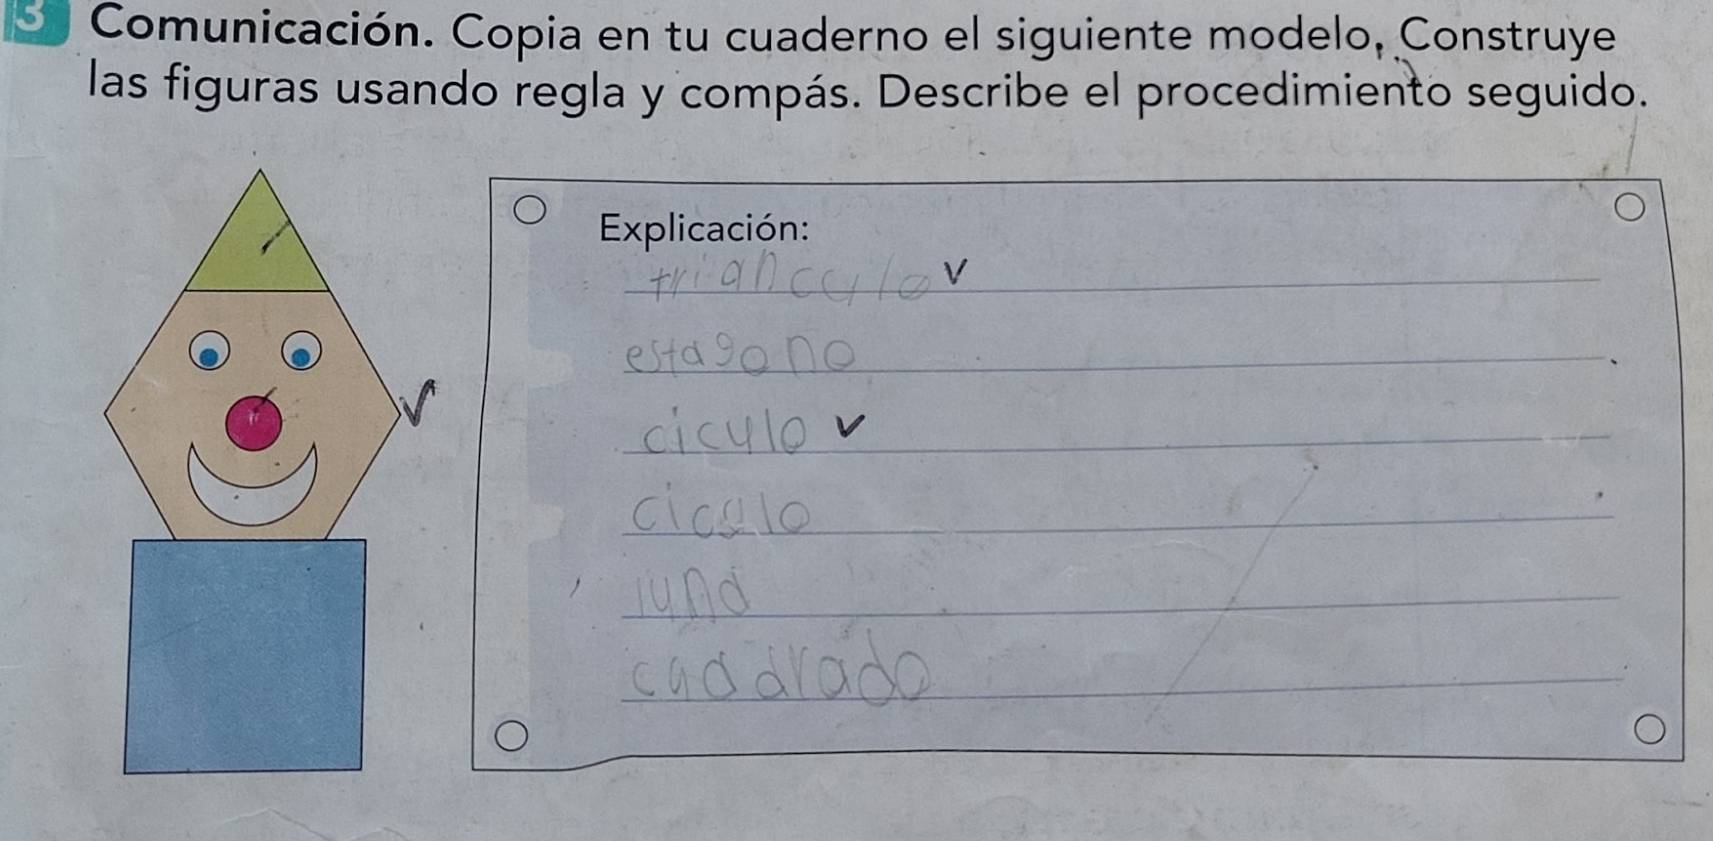 3 Comunicación. Copia en tu cuaderno el siguiente modelo, Construye
las figuras usando regla y compás. Describe el procedimiento seguido.
Explicación:
trianculo
estagono
ciculo
ciculo
luna
cuadrado